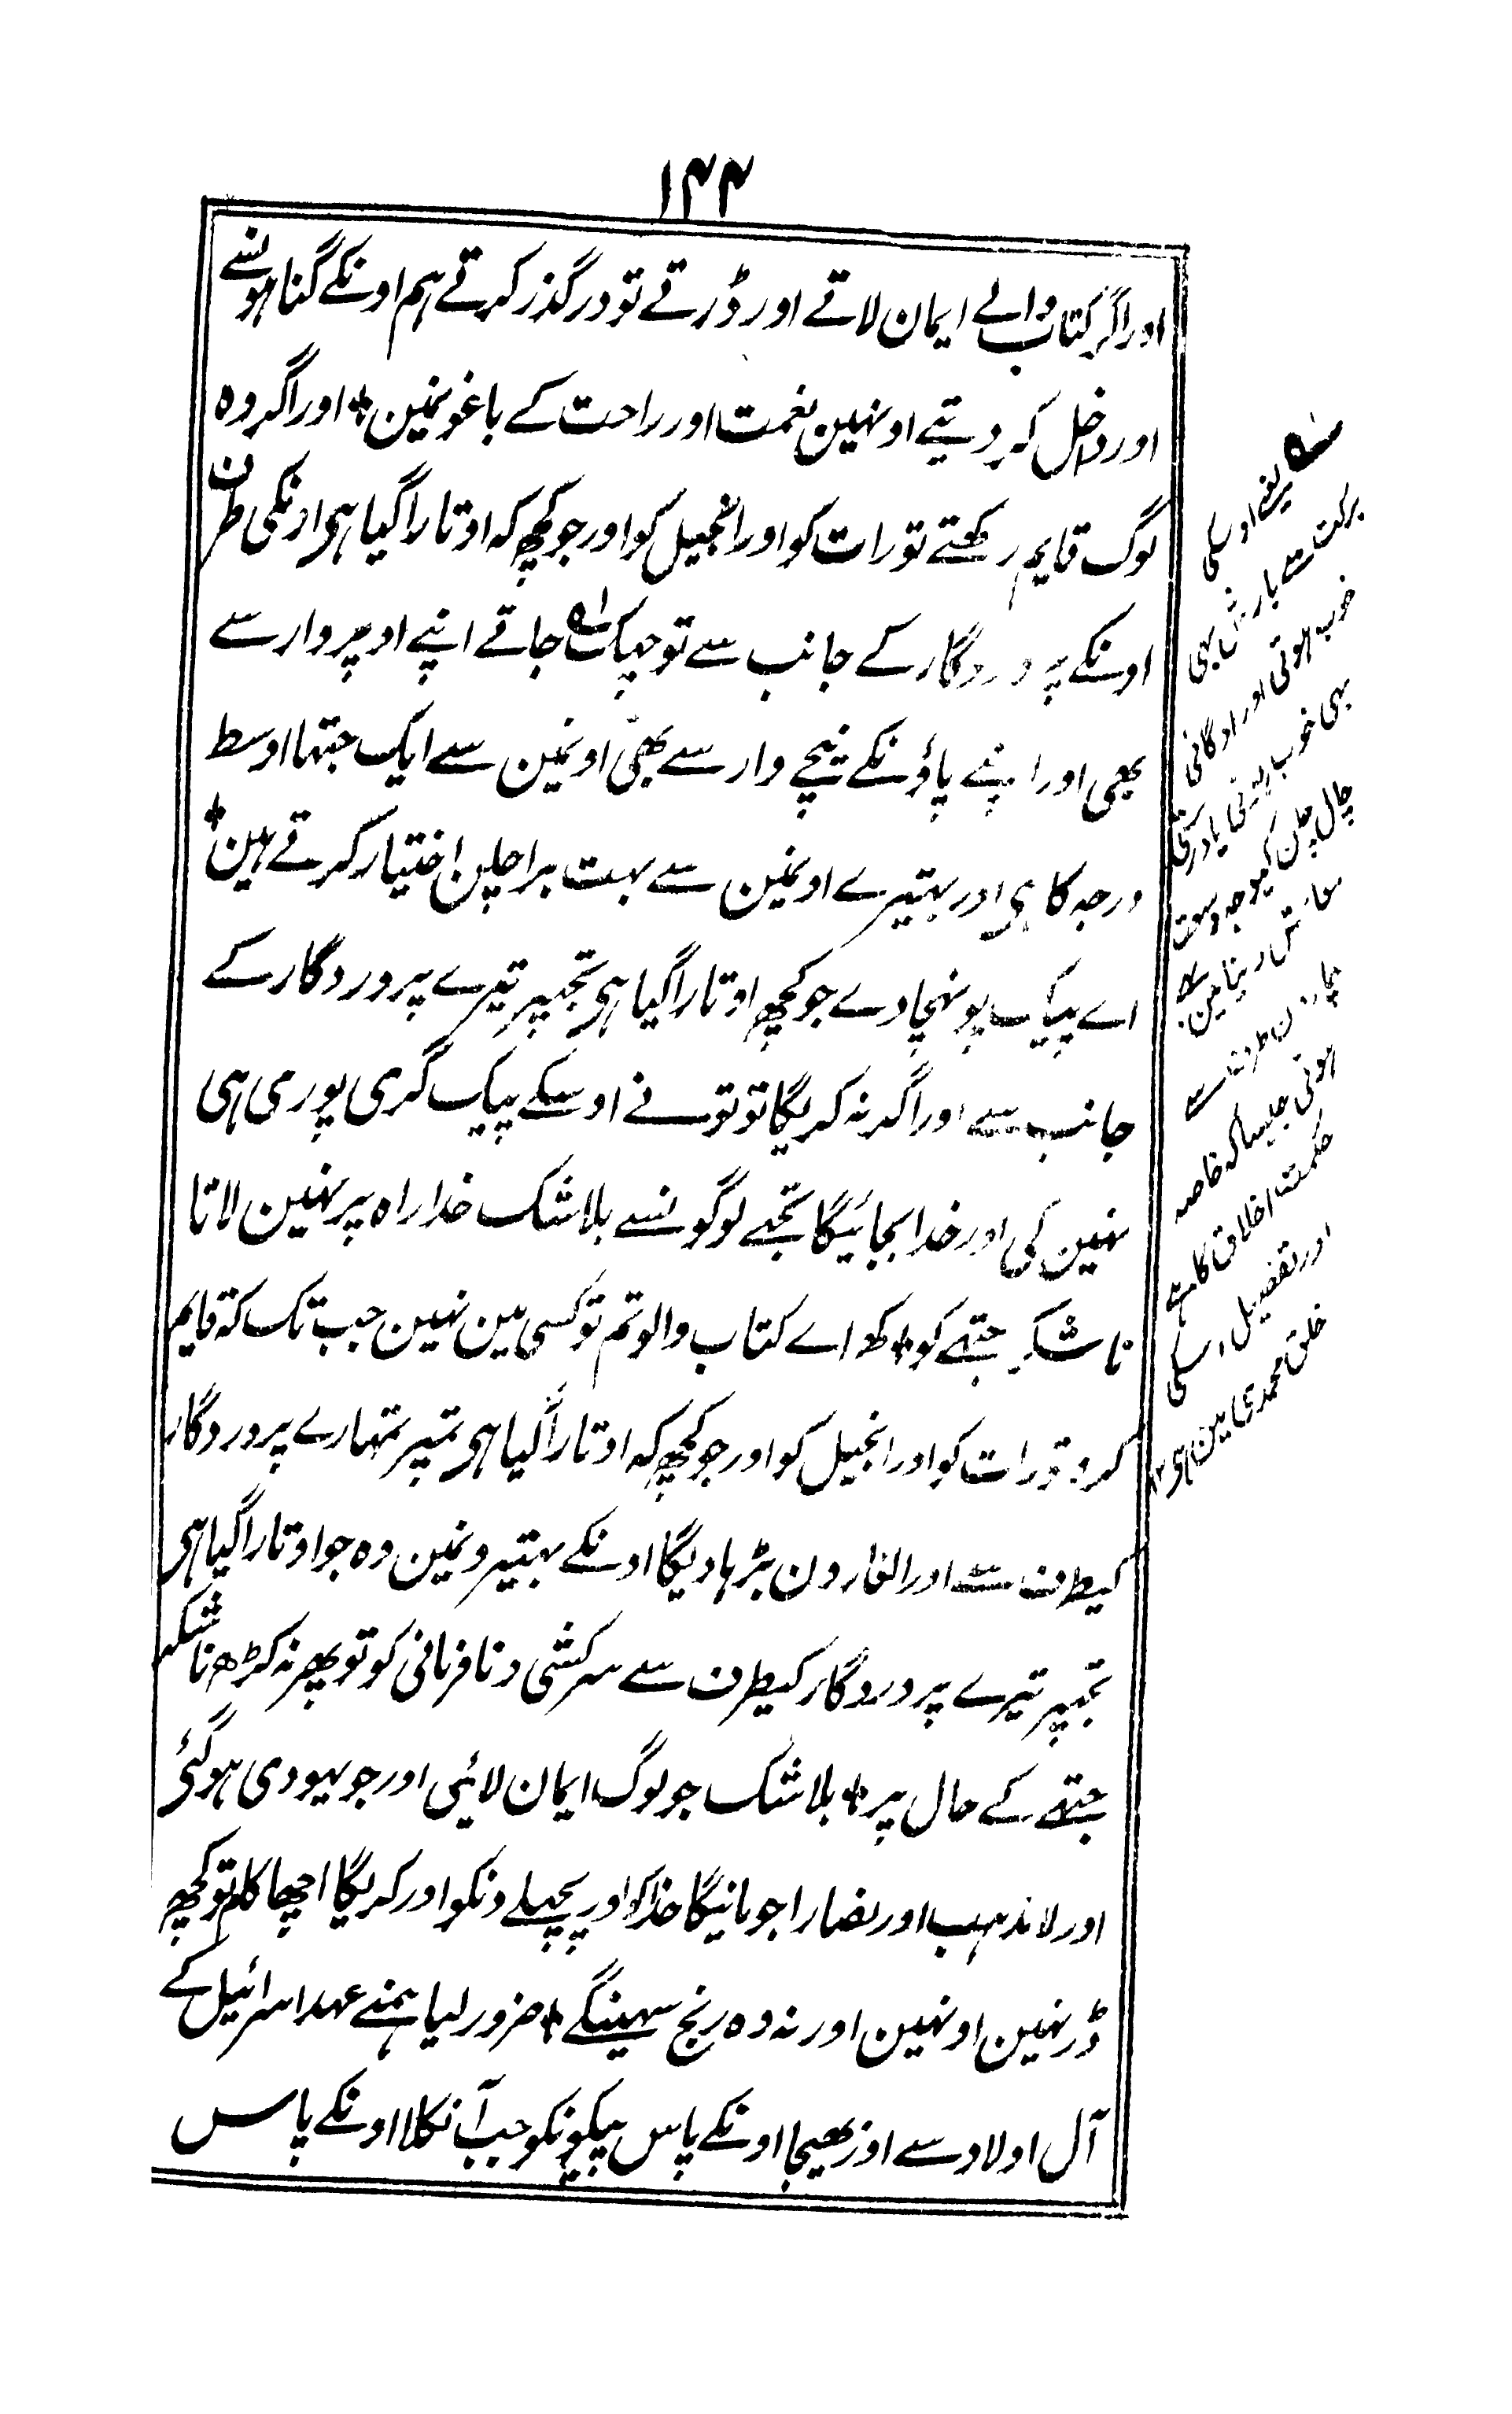 ۱۴۴
اور اگر کتاب والے ایمان لاتے اور ڈرتے تو درگذر کرتے ہم اونکے گناہونسے
اور داخل کر دیتے اونہین نعمت اور راحت کے باغونمین * اور اگر وہ
لوگ قایم رکھتے تورات کو اور انجیل کو اور جو کچھ کہ اوتارا گیا ہی اونکی طرف
اونکے پروردگار کے جانب سے تو چپک جاتے اپنے اوپر وار سے
بھی اور اپنے پاؤنکے نیچے وار سے بھی اونمین سے ایک جتھا اوسط
درجہ کا ہی اور بہتیرے اونمین سے بہت برا چلن اختیار کرتے ہین *
اے پیک پونہچا دے جو کچھ اوتارا گیا ہی تجھپر تیرے پروردگار کے
جانب سے اور اگر نہ کریگا تو تونے اوسکے پیک گری پوری ہی
نہین کی اور خدا بچائیگا تجھے لوگونسے بلاشک خدا راہ پر نہین لاتا
ناشکر جتھے کو * کھ اے کتاب والو تم تو کسی مین نہین جب تک کہ قایم
کرو تورات کو اور انجیل کو اور جو کچھ کہ اوتارا گیا ہی تمپر تمہارے پروردگار
کیطرف سے اور الغارون بڑہا دیگا اونکے بہتیرونمین وہ جو اوتارا گیا ہی
تجھپر تیرے پروردگار کیطرف سے سرکشی و نافرمانی کو تو پھر نہ کڑھ ناشکر
جتھے کے حال پر * بلاشک جو لوگ ایمان لائی اور جو یہودی ہو گئی
اور لامذہب اور نصارا جو مانیگا خدا کو اور پچھلے دنکو اور کریگا اچھا کام تو کچھ
ڈر نہین اونہین اور نہ وہ رنج سہینگے * ضرور لیا ہمنے عہد اسرائیل کے
آل اولاد سے اور بھیجا اونکے پاس پیکونکو جب آ نکلا اونکے پاس
یعنے اوسکی
برکت سے بارش بھی
خوب ہوتی اور اوگائی
بھی خوب ہوتی یا درستی
چال چلن کیوجہ وسعت
معاش دنیا مین
چارون طرف سے
ہوتی جیسا کہ خاصہ
حکمت اخلاق کا ہے
اور تفصیل اسکی
خلق محمدی مین ہی ۱۲